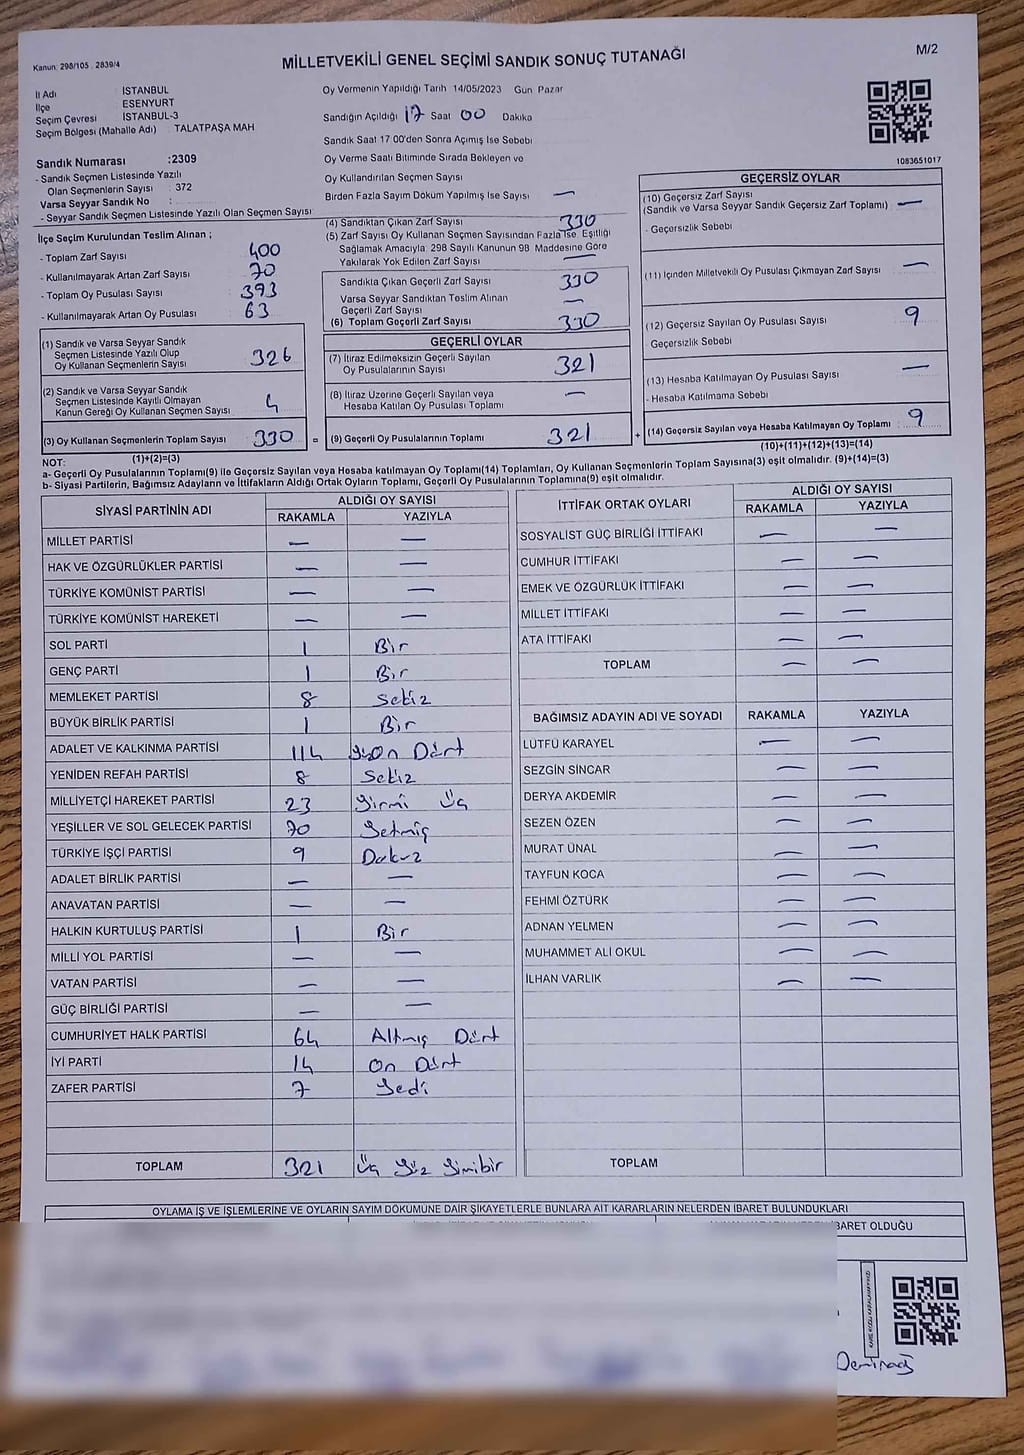 Kanun: 298/105 . 2839/4
MİLLETVEKİLİ GENEL SEÇİMİ SANDIK SONUÇ TUTANAĞI
M/2
İl Adı İSTANBUL
İlçe ESENYURT
Seçim Çevresi İSTANBUL-3
Seçim Bölgesi (Mahalle Adı) TALATPAŞA MAH
Sandık Numarası :2309
- Sandık Seçmen Listesinde Yazılı
Olan Seçmenlerin Sayısı : 372
Varsa Seyyar Sandık No :
- Seyyar Sandık Seçmen Listesinde Yazılı Olan Seçmen Sayısı:
Oy Vermenin Yapıldığı Tarih 14/05/2023 Gün Pazar
Sandığın Açıldığı 17 Saat 00 Dakika
Sandık Saat 17 00'den Sonra Açımış İse Sebebi
Oy Verme Saati Bitiminde Sırada Bekleyen ve
Oy Kullandırılan Seçmen Sayısı
Birden Fazla Sayım Döküm Yapılmış İse Sayısı —
1083651017
İlçe Seçim Kurulundan Teslim Alınan ;
- Toplam Zarf Sayısı 400
- Kullanılmayarak Artan Zarf Sayısı 70
- Toplam Oy Pusulası Sayısı 393
- Kullanılmayarak Artan Oy Pusulası 63
(1) Sandık ve Varsa Seyyar Sandık
Seçmen Listesinde Yazılı Olup
Oy Kullanan Seçmenlerin Sayısı 326
(2) Sandık ve Varsa Seyyar Sandık
Seçmen Listesinde Kayıtlı Olmayan
Kanun Gereği Oy Kullanan Seçmen Sayısı 4
(3) Oy Kullanan Seçmenlerin Toplam Sayısı 330 =
(1)+(2)=(3)
(4) Sandıktan Çıkan Zarf Sayısı 330
(5) Zarf Sayısı Oy Kullanan Seçmen Sayısından Fazla İse Eşitliği
Sağlamak Amacıyla 298 Sayılı Kanunun 98 Maddesine Göre
Yakılarak Yok Edilen Zarf Sayısı —
Sandıkta Çıkan Geçerli Zarf Sayısı 330
Varsa Seyyar Sandıktan Teslim Alınan
Geçerli Zarf Sayısı —
(6) Toplam Geçerli Zarf Sayısı 330
GEÇERLİ OYLAR
(7) İtiraz Edilmeksizin Geçerli Sayılan
Oy Pusulalarının Sayısı 321
(8) İtiraz Üzerine Geçerli Sayılan veya
Hesaba Katılan Oy Pusulası Toplamı —
(9) Geçerli Oy Pusulalarının Toplamı 321 +
GEÇERSİZ OYLAR
(10) Geçersiz Zarf Sayısı
(Sandık ve Varsa Seyyar Sandık Geçersiz Zarf Toplamı) —
- Geçersizlik Sebebi
(11) İçinden Milletvekili Oy Pusulası Çıkmayan Zarf Sayısı —
(12) Geçersiz Sayılan Oy Pusulası Sayısı 9
Geçersizlik Sebebi
(13) Hesaba Katılmayan Oy Pusulası Sayısı —
- Hesaba Katılmama Sebebi
(14) Geçersiz Sayılan veya Hesaba Katılmayan Oy Toplamı 9
(10)+(11)+(12)+(13)=(14)
NOT:
a- Geçerli Oy Pusulalarının Toplamı(9) ile Geçersiz Sayılan veya Hesaba katılmayan Oy Toplamı(14) Toplamları, Oy Kullanan Seçmenlerin Toplam Sayısına(3) eşit olmalıdır. (9)+(14)=(3)
b- Siyasi Partilerin, Bağımsız Adayların ve İttifakların Aldığı Ortak Oyların Toplamı, Geçerli Oy Pusulalarının Toplamına(9) eşit olmalıdır.
SİYASİ PARTİNİN ADI ALDIĞI OY SAYISI
RAKAMLA YAZIYLA
MİLLET PARTİSİ — —
HAK VE ÖZGÜRLÜKLER PARTİSİ — —
TÜRKİYE KOMÜNİST PARTİSİ — —
TÜRKİYE KOMÜNİST HAREKETİ — —
SOL PARTİ 1 Bir
GENÇ PARTİ 1 Bir
MEMLEKET PARTİSİ 8 Sekiz
BÜYÜK BİRLİK PARTİSİ 1 Bir
ADALET VE KALKINMA PARTİSİ 114 Yüz On Dört
YENİDEN REFAH PARTİSİ 8 Sekiz
MİLLİYETÇİ HAREKET PARTİSİ 23 Yirmi Üç
YEŞİLLER VE SOL GELECEK PARTİSİ 70 Yetmiş
TÜRKİYE İŞÇİ PARTİSİ 9 Dokuz
ADALET BİRLİK PARTİSİ — —
ANAVATAN PARTİSİ — —
HALKIN KURTULUŞ PARTİSİ 1 Bir
MİLLİ YOL PARTİSİ — —
VATAN PARTİSİ — —
GÜÇ BİRLİĞİ PARTİSİ — —
CUMHURİYET HALK PARTİSİ 64 Altmış Dört
İYİ PARTİ 14 On Dört
ZAFER PARTİSİ 7 Yedi
TOPLAM 321 Üç Yüz Yirmibir
İTTİFAK ORTAK OYLARI ALDIĞI OY SAYISI
RAKAMLA YAZIYLA
SOSYALİST GÜÇ BİRLİĞİ İTTİFAKI — —
CUMHUR İTTİFAKI — —
EMEK VE ÖZGÜRLÜK İTTİFAKI — —
MİLLET İTTİFAKI — —
ATA İTTİFAKI — —
TOPLAM — —
BAĞIMSIZ ADAYIN ADI VE SOYADI RAKAMLA YAZIYLA
LÜTFÜ KARAYEL — —
SEZGİN SİNCAR — —
DERYA AKDEMİR — —
SEZEN ÖZEN — —
MURAT ÜNAL — —
TAYFUN KOCA — —
FEHMİ ÖZTÜRK — —
ADNAN YELMEN — —
MUHAMMET ALİ OKUL — —
İLHAN VARLIK — —
TOPLAM
OYLAMA İŞ VE İŞLEMLERİNE VE OYLARIN SAYIM DÖKÜMÜNE DAİR ŞİKAYETLERLE BUNLARA AİT KARARLARIN NELERDEN İBARET BULUNDUKLARI
İBARET OLDUĞU